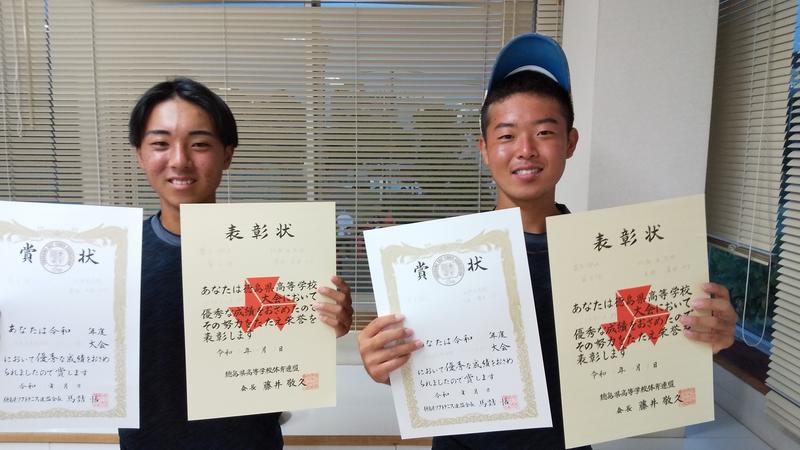 賞 状
あなたは令和 年度
大会
において優秀な成績をおさめ
られましたので賞します
令和 年 月 日
表彰状
あなたは徳島県高等学校
大会において
優秀な成績をおさめたので
その努力をたたえ栄誉を
表彰します
令和 年 月 日
徳島県高等学校体育連盟
会長 藤井 敬久
賞 状
あなたは令和 年度
大会
において優秀な成績をおさめ
られましたので賞します
令和 年 月 日
表彰状
あなたは徳島県高等学校
大会において
優秀な成績をおさめたので
その努力をたたえ栄誉を
表彰します
令和 年 月 日
徳島県高等学校体育連盟
会長 藤井 敬久